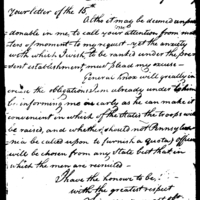 Your letter of the 15th
Altho it may be deemed unpar
donable in me, to call your attention from mat
ters of moment to my request yet the anxiety
with which I wish to be ranked under the pre
sent establishment must plead my excuse—
General Knox will greatly in
crease the obligations I am already under to him
by informing me as early as he can make it
convenient in which of the states the troops will
be raised, and whether should not Pennsylva
nia be called upon to furnish a Quota, officers
will be chosen from any State but that in
which the men are recruited—
I have the honour to be
with the greatest respect